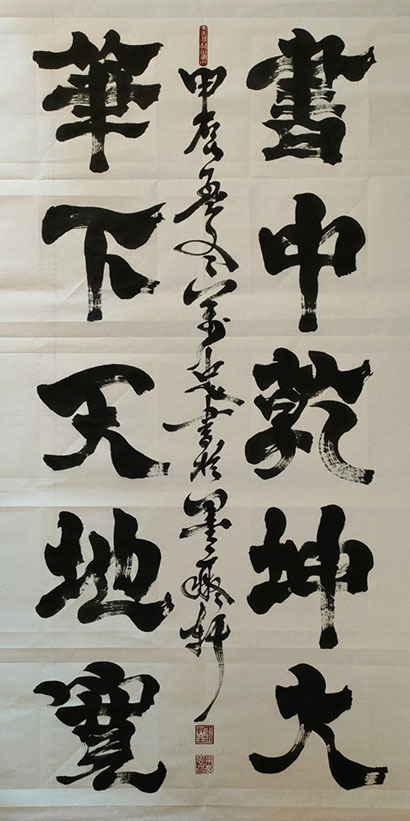 書中乾坤大
甲辰書於墨軒
筆下天地寬